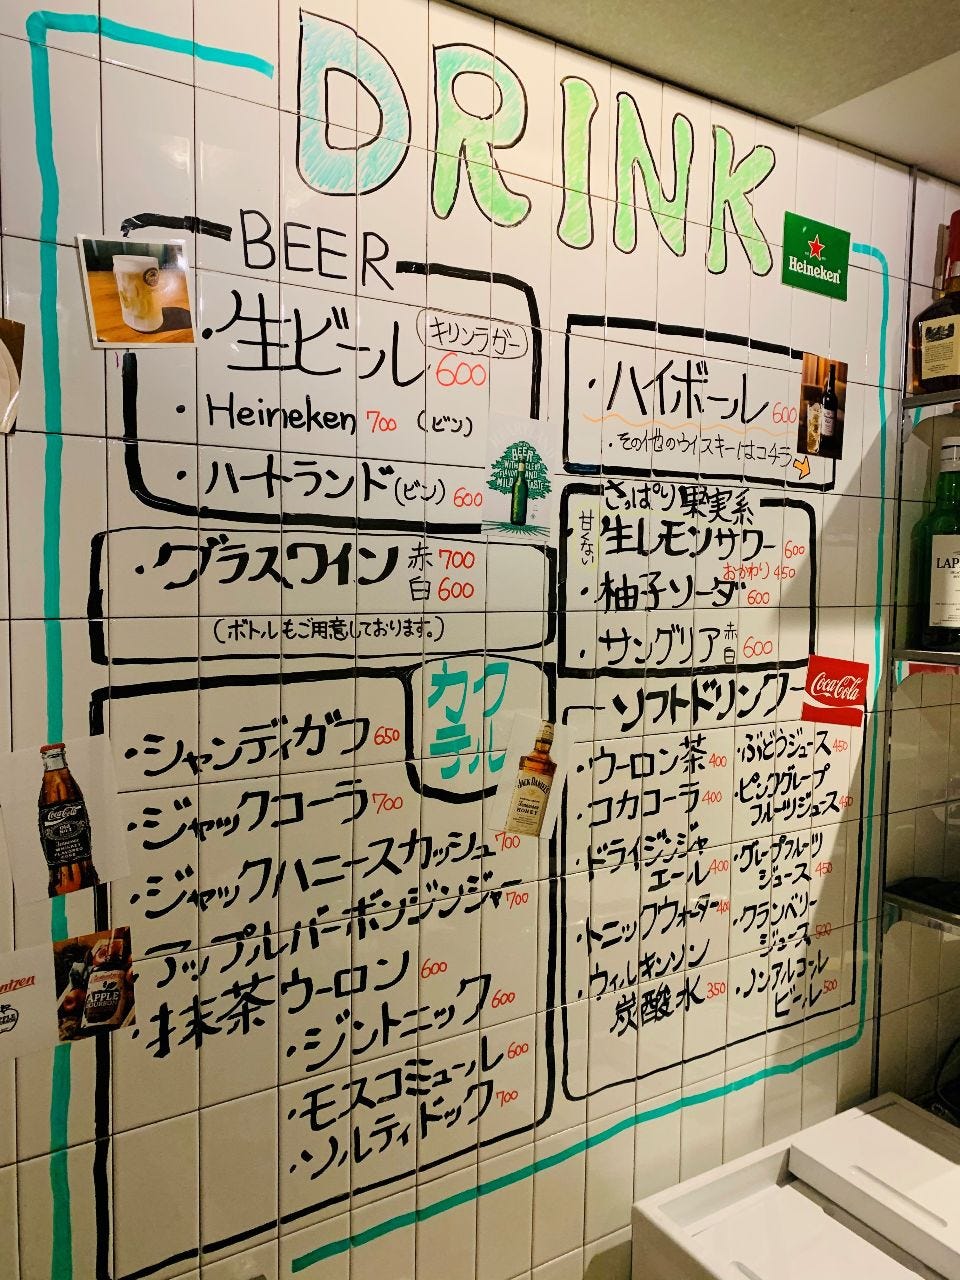 DRINK
Heineken
BEER
・生ビール キリンラガー 600
・Heineken 700 (ビン)
・ハートランド(ビン) 600
BEER
・グラスワイン 赤 700
白 600
(ボトルもご用意しております。)
カクテル
・シャンディガフ 650
・ジャックコーラ 700
・ジャックハニースカッシュ 700
・アップルバーボンジンジャー 700
・抹茶ウーロン 600
・ジントニック 600
・モスコミュール 600
・ソルティドック 700
・ハイボール 600
・その他のウイスキーはコチラ
さっぱり果実系
甘くない
・生レモンサワー 600
おかわり 450
・柚子ソーダ 600
・サングリア 赤 白 600
Coca-Cola
ソフトドリンク
・ウーロン茶 400
・コカコーラ 400
・ドライジンジャ
エール 400
・トニックウォーター 400
・ウィルキンソン
炭酸水 350
・ぶどうジュース 450
・ピンクグレープ
フルーツジュース 450
・グレープフルーツ
ジュース 450
・クランベリー
ジュース 500
・ノンアルコール
ビール 500
Coca-Cola
JACK DANIEL'S
HONEY
APPLE
LAP